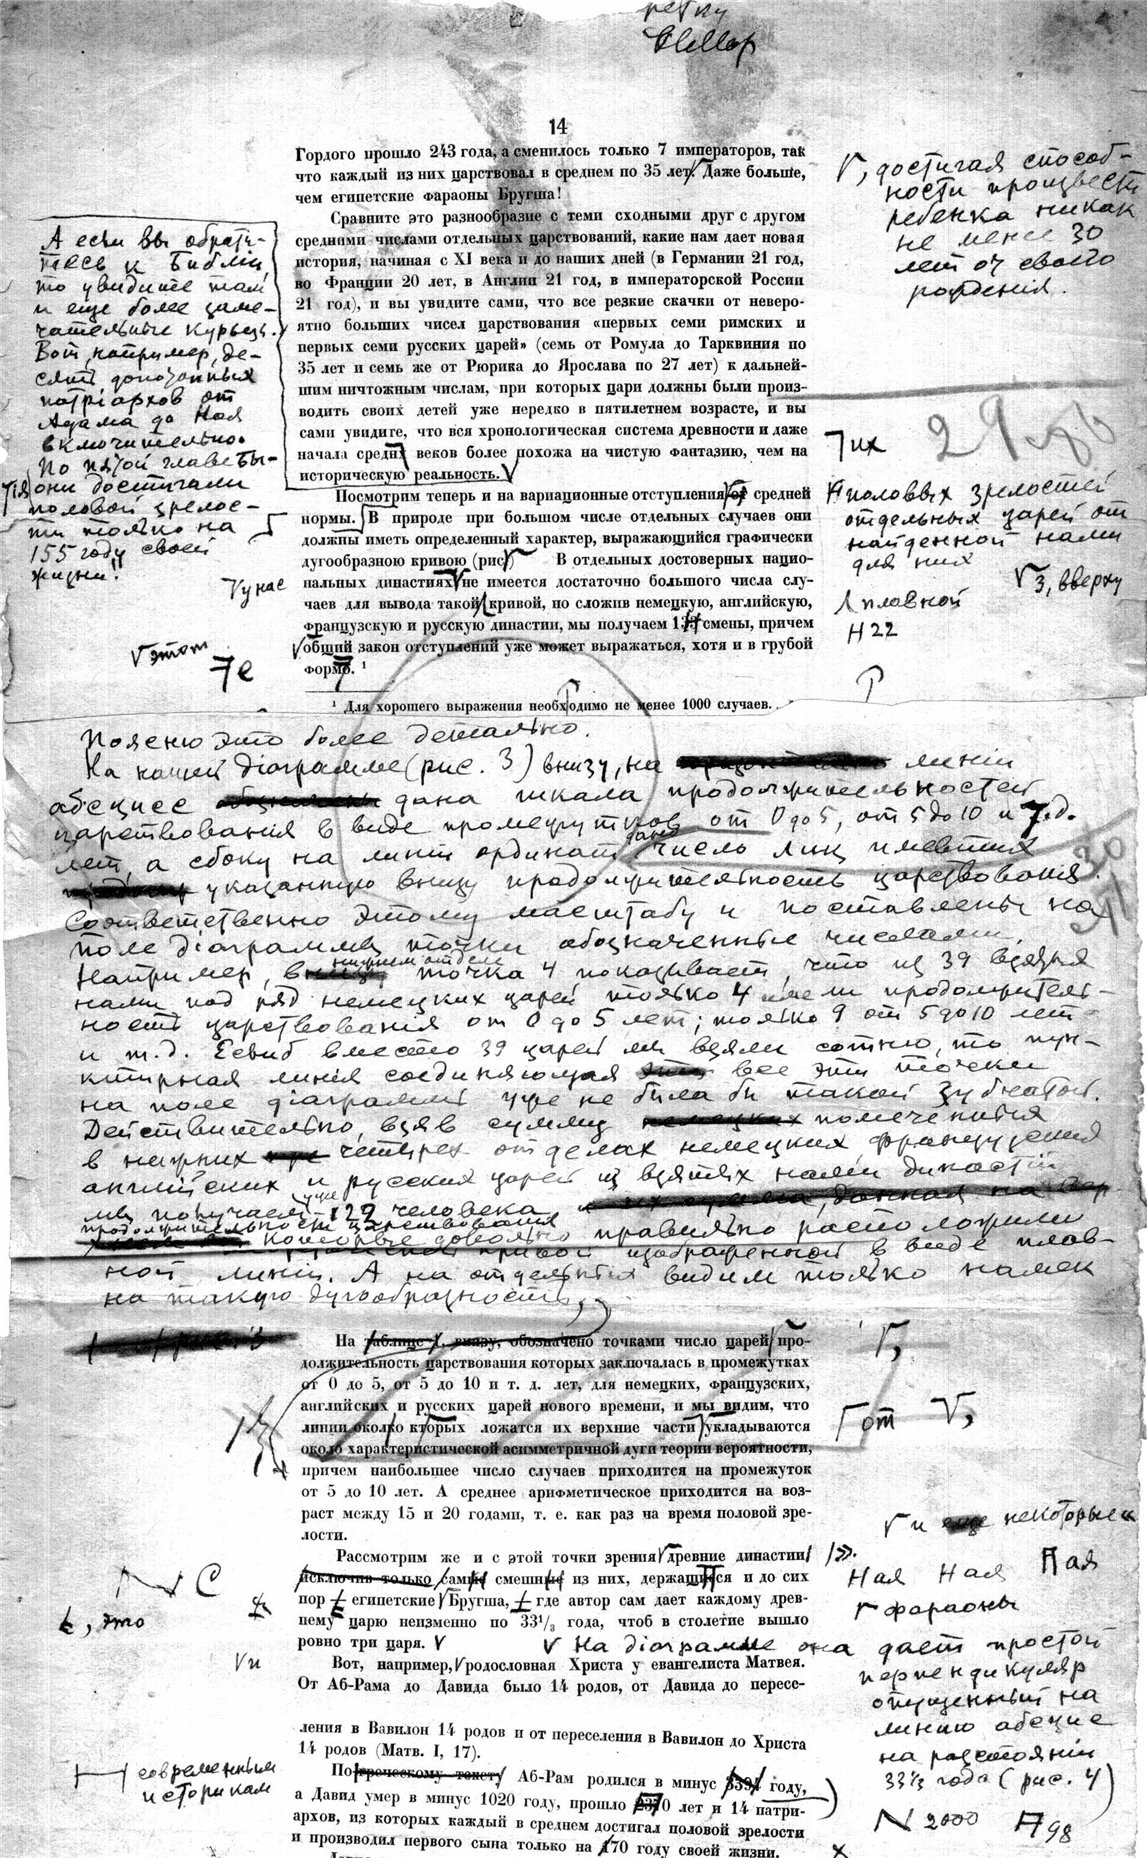 14
Гордого прошло 243 года, а сменилось только 7 императоров, так
что каждый из них царствовал в среднем по 35 лет. Даже больше,
чем египетские фараоны Бругша!
Сравните это разнообразие с теми сходными друг с другом
средними числами отдельных царствований, какие нам дает новая
история, начиная с XI века и до наших дней (в Германии 21 год,
во Франции 20 лет, в Англии 21 год, в императорской России
21 год), и вы увидите сами, что все резкие скачки от неверо-
ятно больших чисел царствования «первых семи римских и
первых семи русских царей» (семь от Ромула до Тарквиния по
35 лет и семь же от Рюрика до Ярослава по 27 лет) к дальней-
шим ничтожным числам, при которых цари должны были произ-
водить своих детей уже нередко в пятилетнем возрасте, и вы
сами увидите, что вся хронологическая система древности и даже
начала средн веков более похожа на чистую фантазию, чем на
историческую реальность.
, достигая способ-
ности произвести
ребенка никак
не менее 30
лет от своего
рождения.
А если вы обрати-
тесь к Библии,
то увидите там
и еще более заме-
чательные курьезы.
Вот, например, де-
сять допотопных
патріархов от
Адама до Ноя
включительно.
По пятой главе Бы-
тія они достигали
половой зрелос-
ти только на
155 году своей
жизни!
их
29
Посмотрим теперь и на вариационные отступления от средней
нормы. В природе при большом числе отдельных случаев они
должны иметь определенный характер, выражающийся графически
дугообразною кривою (рис. В отдельных достоверных нацио-
нальных династиях не имеется достаточно большого числа слу-
чаев для вывода такой кривой, но сложив немецкую, английскую,
французскую и русскую династии, мы получаем смены, причем
общий закон отступлений уже может выражаться, хотя и в грубой
форме. ¹
половых зрелостей
отдельных царей от
найденной нами
для них
3, вверху
плавной
22
у нас
этот
е
¹ Для хорошего выражения необходимо не менее 1000 случаев.
Поясню это более детально.
На нашей діаграмме (рис. 3) внизу, на линіи
абсцисс дана шкала продолжительностей
царствования в виде промежутков от 0 до 5, от 5 до 10 и т.д.
лет, а сбоку на линіи ординат дано число лиц имевших
указанную внизу продолжительность царствования.
Соответственно этому масштабу и поставлены на
поле діаграммы точки обозначенные числами.
Например, в нижнем отделе точка 4 показывает, что из 39 взятых
нами под ряд немецких царей только 4 имели продолжитель-
ность царствования от 0 до 5 лет; только 9 от 5 до 10 лет
и т.д. Если б вместо 39 царей мы взяли сотню, то пун-
ктирная линія соединяющая все эти точки
на поле діаграммы уже не была бы такой зубчатой.
Действительно, взяв сумму помеченных
в нижних четырех отделах немецких французских
английских и русских царей из взятых нами династій
мы получаем уже 129 человека
продолжительности царствования которые довольно правильно расположили
кривой изображенной в виде плав-
ной линіи. А на отдельных видим только намек
на такую дугообразность.
На таблице 1, внизу, обозначено точками число царей про-
должительность царствования которых заключалась в промежутках
от 0 до 5, от 5 до 10 и т. д. лет, для немецких, французских,
английских и русских царей нового времени, и мы видим, что
линии около кторых ложатся их верхние части укладываются
около характеристической асимметричной дуги теории вероятности,
причем наибольшее число случаев приходится на промежуток
от 5 до 10 лет. А среднее арифметическое приходится на воз-
раст между 15 и 20 годами, т. е. как раз на время половой зре-
лости.
от
Рассмотрим же и с этой точки зрения древние династии
исключив только самые смешные из них, держащиеся и до сих
пор египетские Бругша, где автор сам дает каждому древ-
нему царю неизменно по 33¹/₃ года, чтоб в столетие вышло
ровно три царя.
и еще некоторые
ная ная ая
фараоны
С
, это
На діаграмме она дает простой
перпендикуляр
опущенный на
линию абсцисс
на разстояніи
33⅓ года (рис. 4)
и
Вот, например, родословная Христа у евангелиста Матвея.
От Аб-Рама до Давида было 14 родов, от Давида до пересе-
ления в Вавилон 14 родов и от переселения в Вавилон до Христа
14 родов (Матв. I, 17).
По греческому тексту Аб-Рам родился в минус году,
а Давид умер в минус 1020 году, прошло лет и 14 патри-
архов, из которых каждый в среднем достигал половой зрелости
и производил первого сына только на 170 году своей жизни.
современным
историкам
2000
98